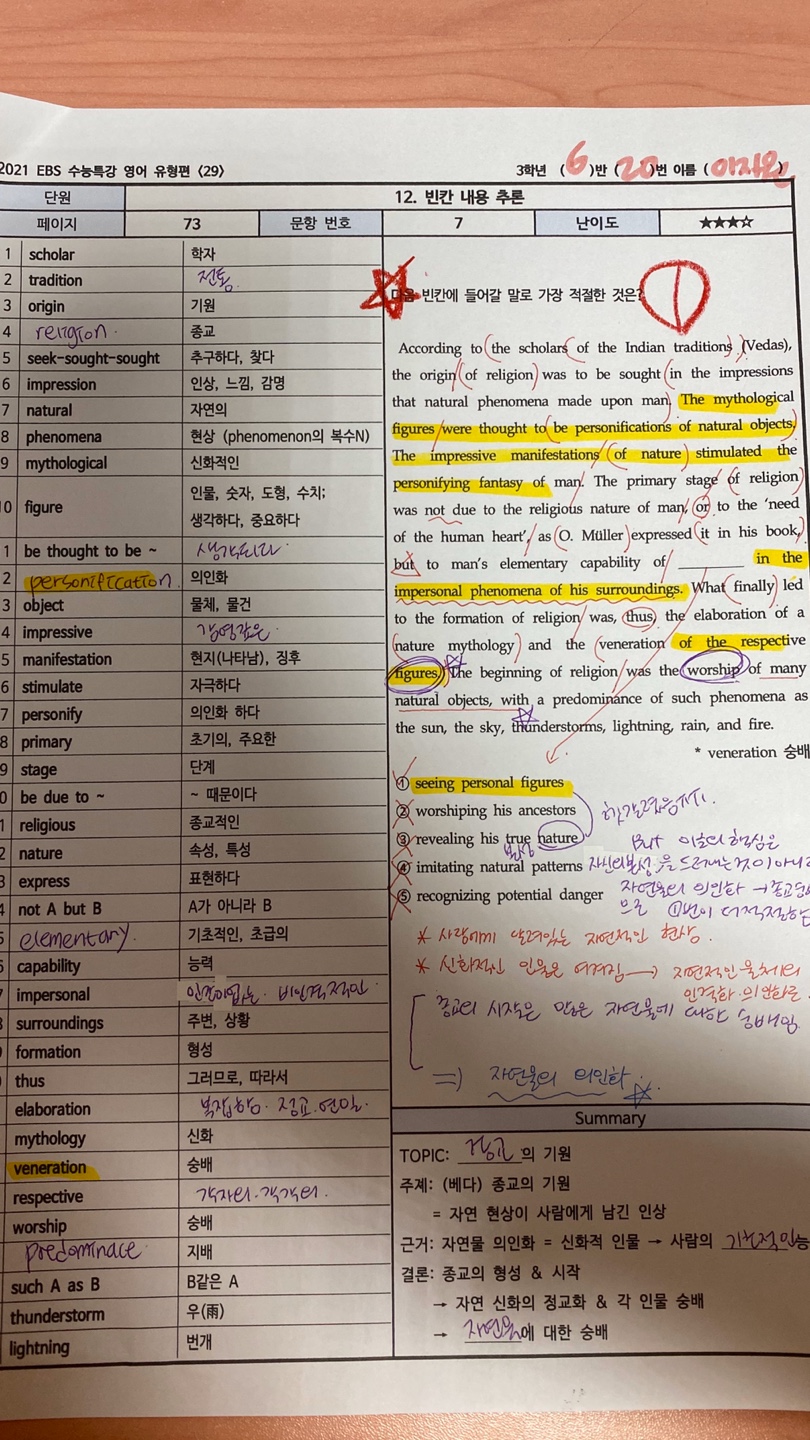 2021 EBS 수능특강 영어 유형편 <29>
3학년 (6)반 (20)번 이름 ( )
단원 12. 빈칸 내용 추론
페이지 73 문항 번호 7 난이도 ★★★☆
1 scholar 학자
2 tradition 전통
3 origin 기원
4 religion 종교
5 seek-sought-sought 추구하다, 찾다
6 impression 인상, 느낌, 감명
7 natural 자연의
8 phenomena 현상 (phenomenon의 복수N)
9 mythological 신화적인
0 figure 인물, 숫자, 도형, 수치;
생각하다, 중요하다
1 be thought to be ~ 생각되다
2 personification 의인화
3 object 물체, 물건
4 impressive 감명깊은
5 manifestation 현지(나타남), 징후
6 stimulate 자극하다
7 personify 의인화 하다
8 primary 초기의, 주요한
9 stage 단계
0 be due to ~ ~ 때문이다
1 religious 종교적인
2 nature 속성, 특성
3 express 표현하다
4 not A but B A가 아니라 B
5 elementary. 기초적인, 초급의
6 capability 능력
7 impersonal 비인격적인
8 surroundings 주변, 상황
formation 형성
thus 그러므로, 따라서
elaboration 복잡함. 정교.
mythology 신화
veneration 숭배
respective 각자의. 각각의.
worship 숭배
predominace 지배
such A as B B같은 A
thunderstorm 우(雨)
lightning 번개
다음 빈칸에 들어갈 말로 가장 적절한 것은?
According to the scholars of the Indian traditions (Vedas),
the origin of religion was to be sought in the impressions
that natural phenomena made upon man. The mythological
figures were thought to be personifications of natural objects.
The impressive manifestations of nature stimulated the
personifying fantasy of man. The primary stage of religion
was not due to the religious nature of man, or to the 'need
of the human heart', as O. Müller expressed it in his book,
but to man's elementary capability of ________ in the
impersonal phenomena of his surroundings. What finally led
to the formation of religion was, thus, the elaboration of a
nature mythology and the veneration of the respective
figures. The beginning of religion was the worship of many
natural objects, with a predominance of such phenomena as
the sun, the sky, thunderstorms, lightning, rain, and fire.
* veneration 숭배
① seeing personal figures
② worshiping his ancestors
③ revealing his true nature
본성
④ imitating natural patterns
⑤ recognizing potential danger
헷갈렸음
But 이 글의 핵심은
자신의 본성을 드러내는 것이 아니라
자연물의 의인화 → 종교
으로 ①번이 더 적절하
* 사람에게 알려있는 자연적인 현상.
* 신화적인 인물은 여겨짐 → 자연적인 물체의
인격화 의인화로
종교의 시작은 많은 자연물에 대한 숭배임
⇒ 자연물의 의인화.
Summary
TOPIC: 종교의 기원
주제: (베다) 종교의 기원
= 자연 현상이 사람에게 남긴 인상
근거: 자연물 의인화 = 신화적 인물 → 사람의 기본적인능
결론: 종교의 형성 & 시작
→ 자연 신화의 정교화 & 각 인물 숭배
→ 자연물에 대한 숭배